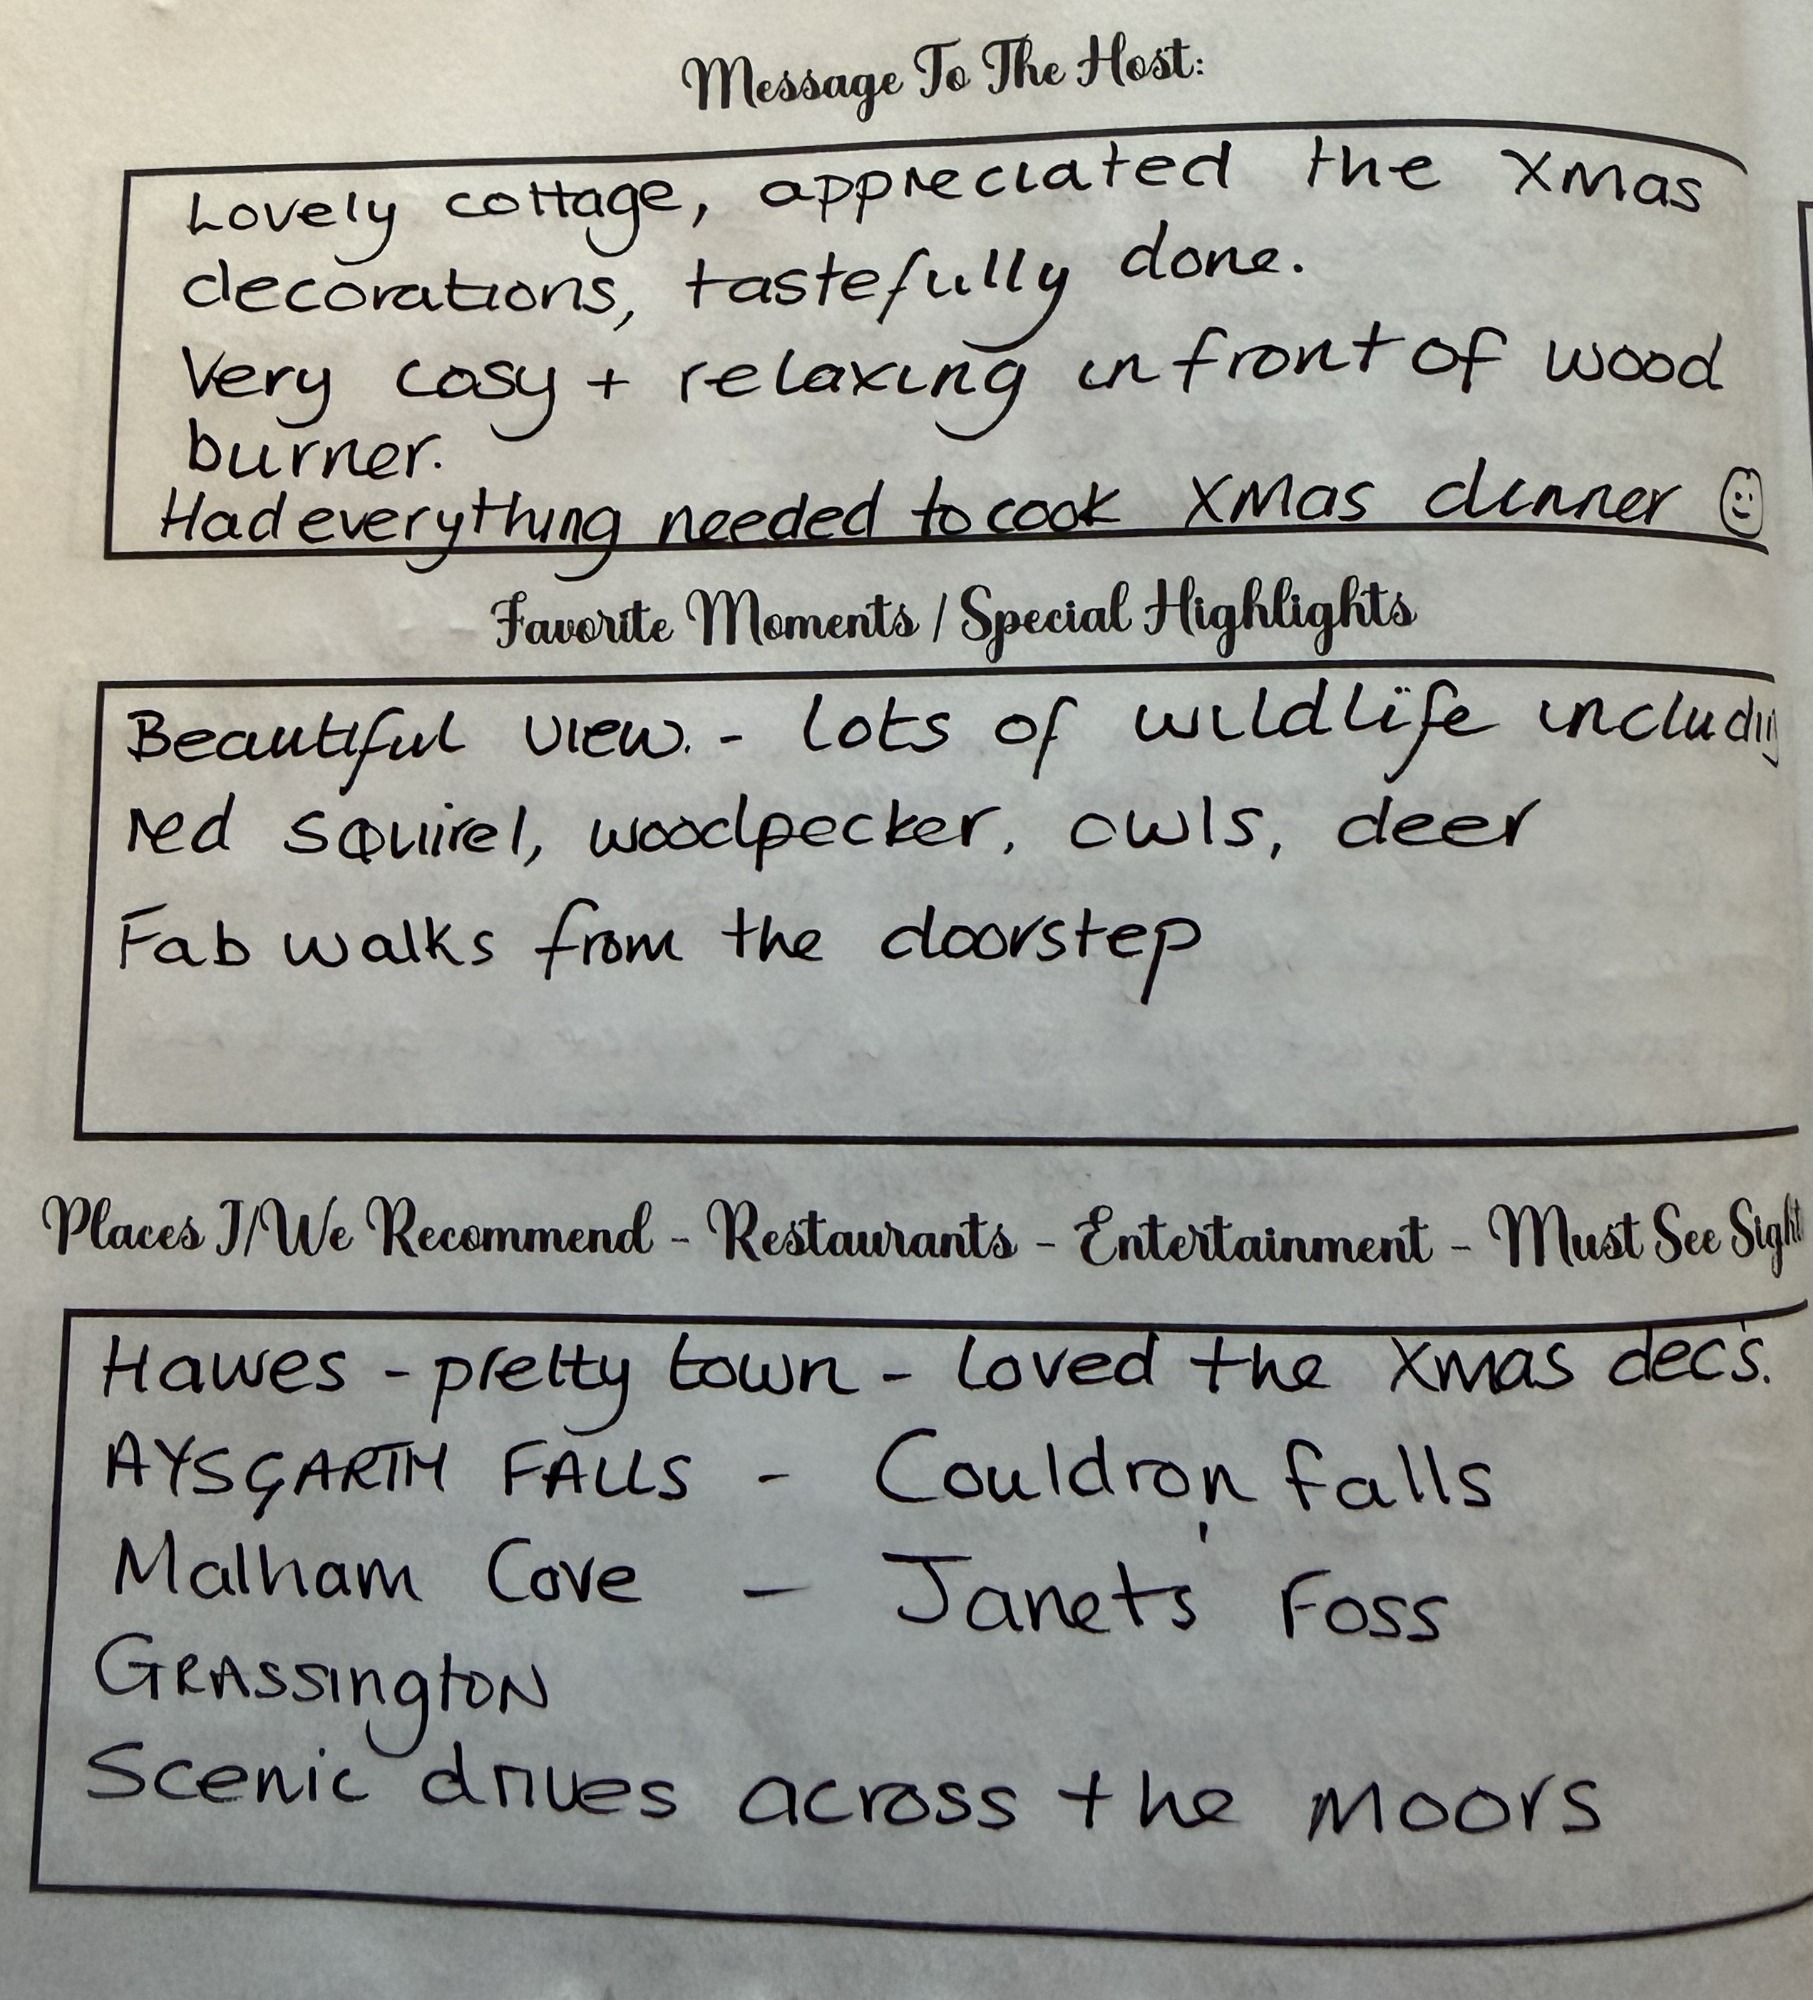 Message To The Host:
Lovely cottage, appreciated the Xmas
decorations, tastefully done.
Very cosy + relaxing in front of wood
burner.
Had everything needed to cook Xmas dinner ☺
Favorite Moments / Special Highlights
Beautiful view. - lots of wildlife including
red squirel, woodpecker, owls, deer
Fab walks from the doorstep
Places I/We Recommend - Restaurants - Entertainment - Must See Sight
Hawes - pretty town - loved the Xmas dec's.
AYSGARTH FALLS - Couldron falls
Malham Cove - Janet's Foss
GRASSington
Scenic drives across the moors